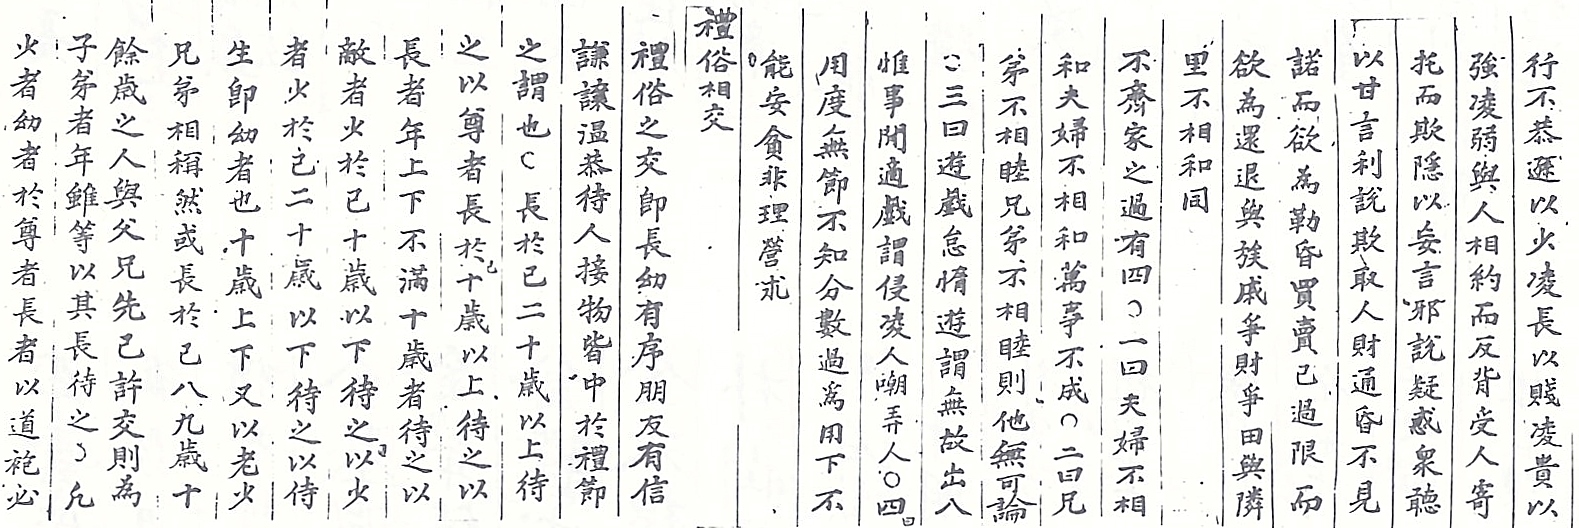 行不恭遜以少凌長以賤凌貴以
強凌弱與人相約而反背受人寄
托而欺隱以妄言邪說疑惑衆聽
以甘言利說欺取人財通昏不見
諾而欲為勒昏買賣已過限而
欲為還退與族戚爭財爭田與隣
里不相和同
不齊家之過有四○一曰夫婦不相
和夫婦不相和萬事不成○二曰兄
弟不相睦兄弟不相睦則他無可論
○三曰遊戱怠惰遊謂無故出入
惟事閒適戱謂侵凌人嘲弄人○四曰
用度無節不知分數過為用下不
能安貧非理營求
禮俗相交
禮俗之交卽長幼有序朋友有信
謙讓溫恭待人接物皆中於禮節
之謂也○長於己二十歲以上待
之以尊者長於己十歲以上待之以
長者年上下不滿十歲者待之以
敵者少於己十歲以下待之以少
者少於己二十歲以下待之以侍
生卽幼者也十歲上下又以老少
兄弟相稱然或長於己八九歲十
餘歲之人與父兄先已許交則為
子弟者年雖等以其長待之○凡
少者幼者於尊者長者以道袍必